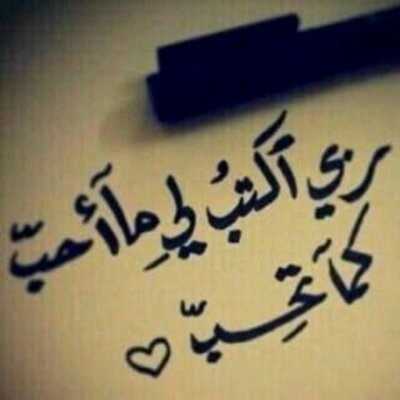 ربي ٱكتبُ لي مِاآأحبّ
كمآ تحِبّ